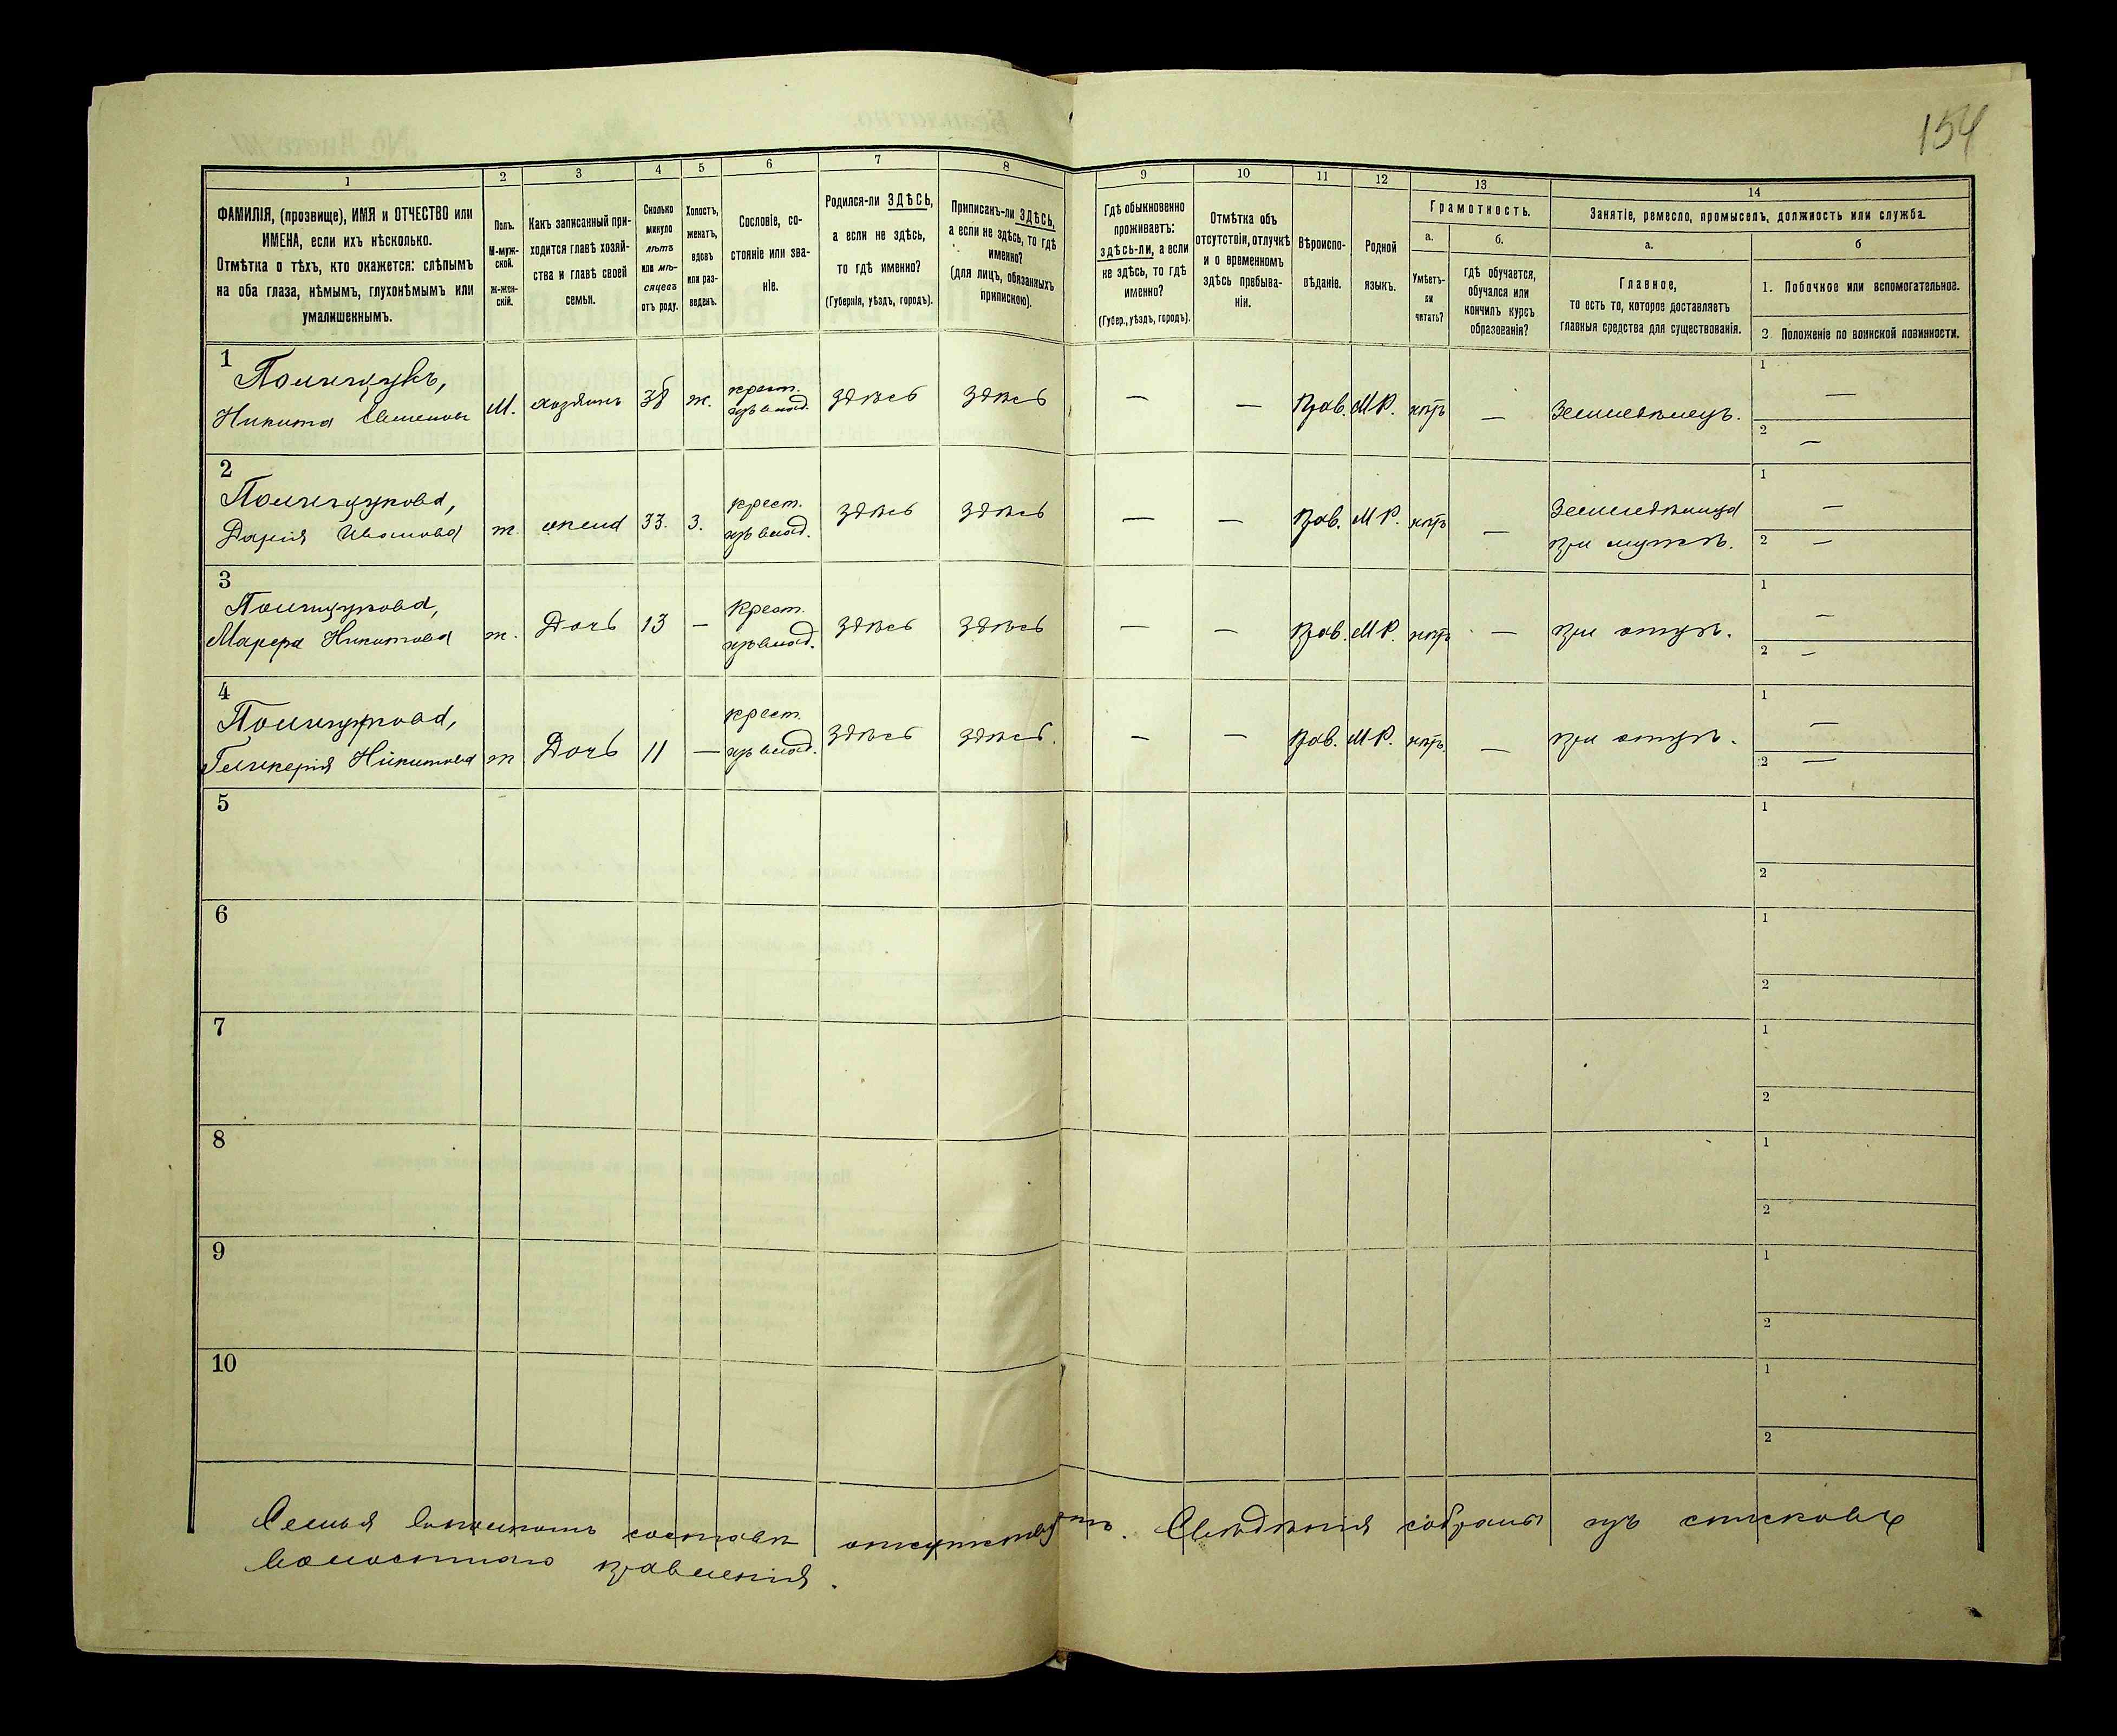 154
1
2
3
4
5
6
7
8
9
10
11
12
13
14
ФАМИЛІЯ, (прозвище), ИМЯ и ОТЧЕСТВО или
ИМЕНА, если ихъ нѣсколько.
Отмѣтка о тѣхъ, кто окажется: слѣпымъ
на оба глаза, нѣмымъ, глухонѣмымъ или
умалишеннымъ.
Полъ.
М-муж-
ской.
ж-жен-
скій.
Какъ записанный при-
ходится главѣ хозяй-
ства и главѣ своей
семьи.
Сколько
минуло
лѣтъ
или мѣ-
сяцевъ
отъ роду.
Холостъ,
женатъ,
вдовъ
или раз-
веденъ.
Сословіе, со-
стояніе или зва-
ніе.
Родился-ли ЗДѢСЬ,
а если не здѣсь,
то гдѣ именно?
(Губернія, уѣздъ, городъ).
Приписанъ-ли ЗДѢСЬ,
а если не здѣсь, то гдѣ
именно?
(для лицъ, обязанныхъ
припискою).
Гдѣ обыкновенно
проживаетъ:
здѣсь-ли, а если
не здѣсь, то гдѣ
именно?
(Губер., уѣздъ, городъ).
Отмѣтка объ
отсутствіи, отлучкѣ
и о временномъ
здѣсь пребыва-
ніи.
Вѣроиспо-
вѣданіе.
Родной
языкъ.
Грамотность.
а.
Умѣетъ-
ли
читать?
б.
гдѣ обучается,
обучался или
кончилъ курсъ
образованія?
Занятіе, ремесло, промыселъ, должность или служба.
а.
Главное,
то есть то, которое доставляетъ
главныя средства для существованія.
б
1. Побочное или вспомогательное.
2 Положеніе по воинской повинности.
1
Полищукъ,
Никита Семеновъ
М. хозяинъ 38 ж. крест. изъ влад. здѣсь здѣсь — — Прав. М Р. нѣтъ — Земледѣлецъ.
1 —
2 —
2
Полищукова,
Дарія Иванова
ж. жена 33. З. крест. изъ влад. здѣсь здѣсь — — Прав. М Р. нѣтъ — Земледѣлица
при мужѣ.
1 —
2 —
3
Полищукова,
Никитова
ж. Дочь 13 — Крест. изъ влад. здѣсь здѣсь — — Прав. М Р. нѣтъ — при отцѣ.
1 —
2 —
4
Полищукова,
Гликерія Никитова
ж Дочь 11 — крест. изъ влад. здѣсь здѣсь. — — Прав. М Р. нѣтъ — при отцѣ.
1 —
2 —
5
1
2
6
1
2
7
1
2
8
1
2
9
1
2
10
1
2
Семья въ полномъ составѣ отсутствуетъ. Свѣдѣнія собраны изъ списковъ
волостнаго правленія.